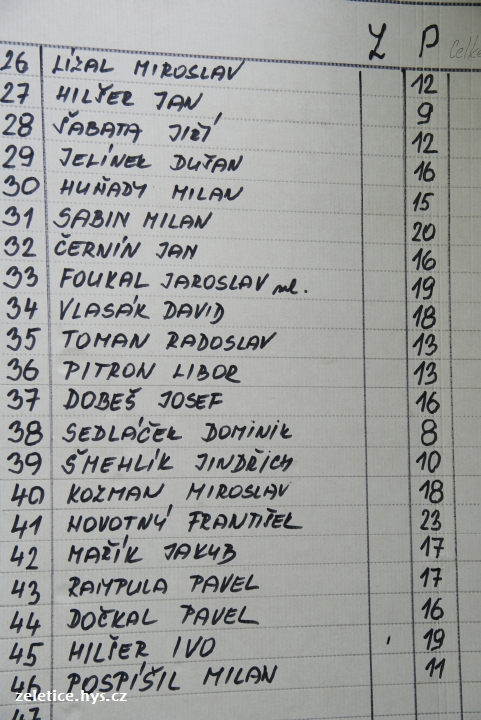 Z P Celke
26 LÍZAL MIROSLAV 12
27 HILŠER JAN 9
28 ŠABATA JIŘÍ 12
29 JELÍNEK DUŠAN 16
30 HUŇADY MILAN 15
31 SABIN MILAN 20
32 ČERNÍN JAN 16
33 FOUKAL JAROSLAV ml. 19
34 VLASÁK DAVID 18
35 TOMAN RADOSLAV 13
36 PITRON LIBOR 13
37 DOBEŠ JOSEF 16
38 SEDLÁČEK DOMINIK 8
39 ŠMEHLÍK JINDŘICH 10
40 KOZMAN MIROSLAV 18
41 NOVOTNÝ FRANTIŠEK 23
42 MAŘÍK JAKUB 17
43 RAMPULA PAVEL 17
44 DOČKAL PAVEL 16
45 HILŠER IVO 19
46 POSPÍŠIL MILAN 11
zeletice.hys.cz
47